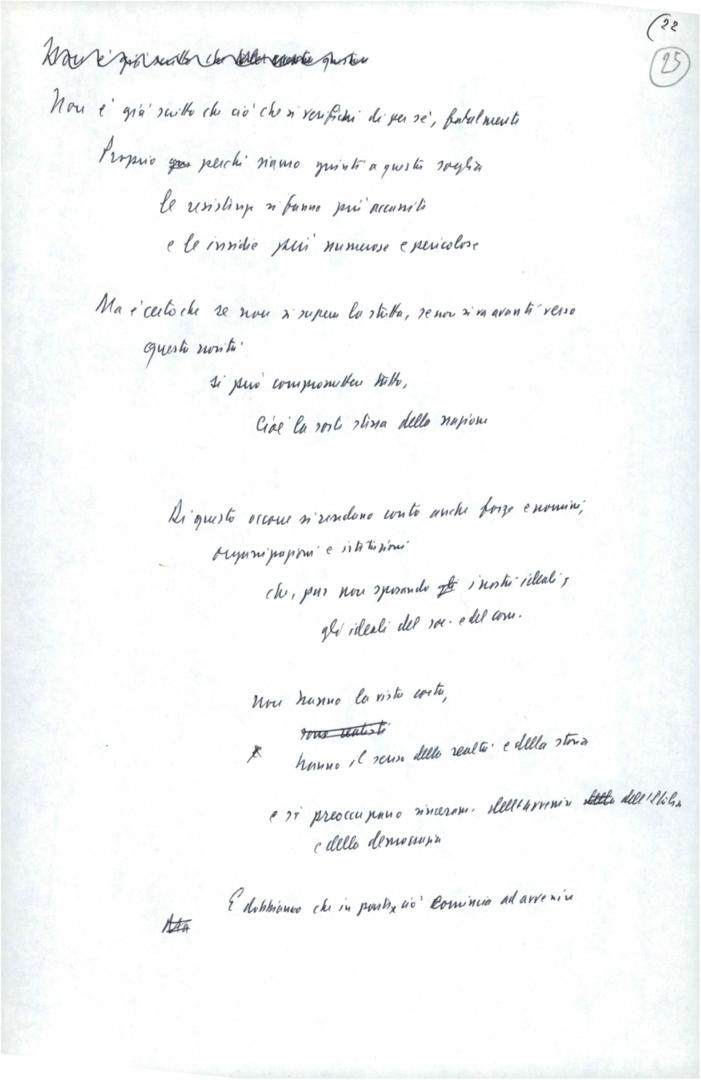 (22
25
Non è già scritto che ciò che si verifichi di per sé, fatalmente
Proprio perché siamo giunti a questa soglia
le resistenze si fanno più accanite
e le insidie più numerose e pericolose
Ma è certo che se non si supera la stretta, se non si va avanti verso
queste novità
si può compromettere tutto,
cioè la sorte stessa della nazione
Di questo occorre si rendano conto anche forze e uomini,
organizzazioni e istituzioni
che, pur non sposando gli i nostri ideali,
gli ideali del soc. e del com.
non hanno la vista corta,
sono realisti
hanno il senso della realtà e della storia
e si preoccupano sinceram. dell'avvenire della dell'Italia
e della democrazia
E dobbiamo che in parte ciò comincia ad avvenire
Ma